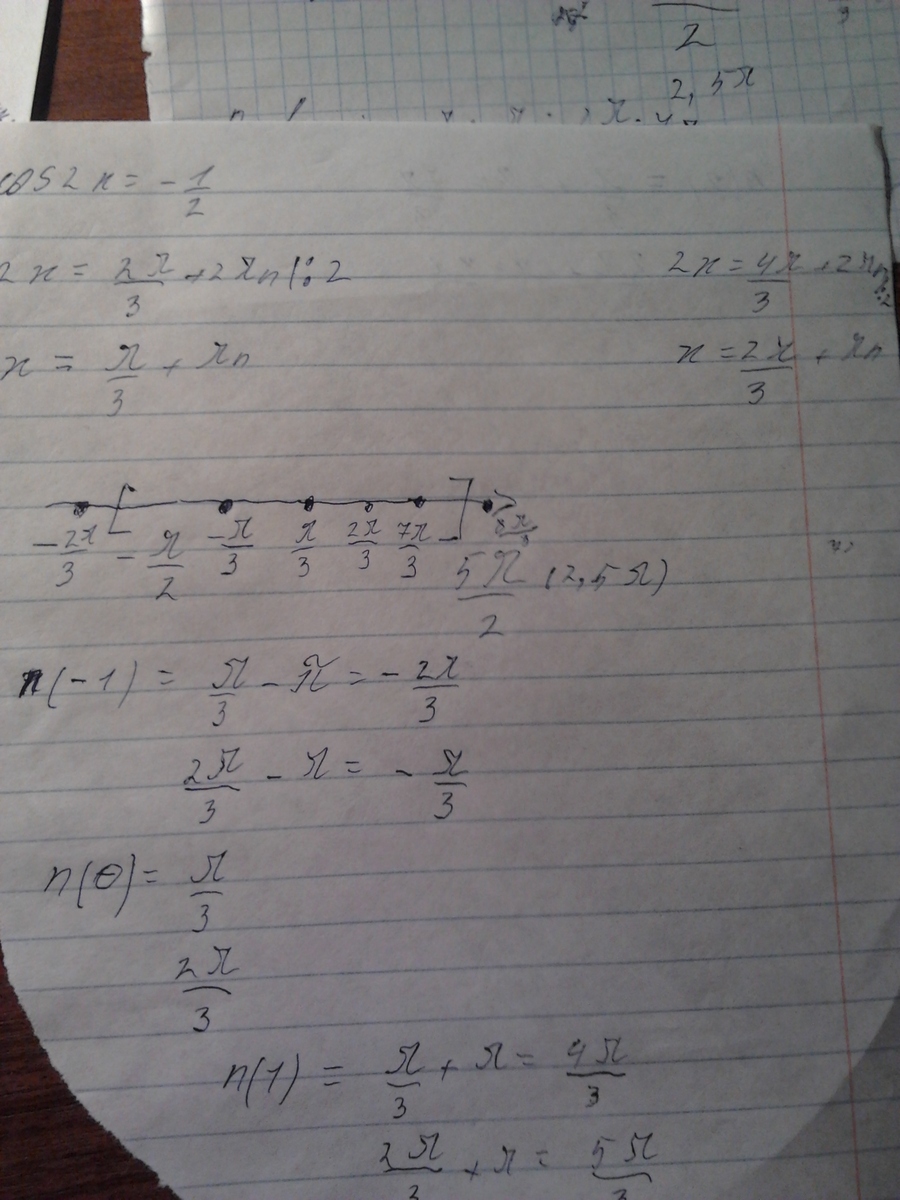 2
2,5π
cos2x = -1/2
2x = 2π/3 + 2πn |:2
2x = 4π/3 + 2πn |:2
x = π/3 + πn
x = 2π/3 + πn
-2π/3 [ -π/2 -π/3 π/3 2π/3 7π/3 ] 8π/3
5π/2 (2,5π)
n(-1) = π/3 - π = -2π/3
2π/3 - π = -π/3
n(0) = π/3
2π/3
n(1) = π/3 + π = 4π/3
2π/3 + π = 5π/3